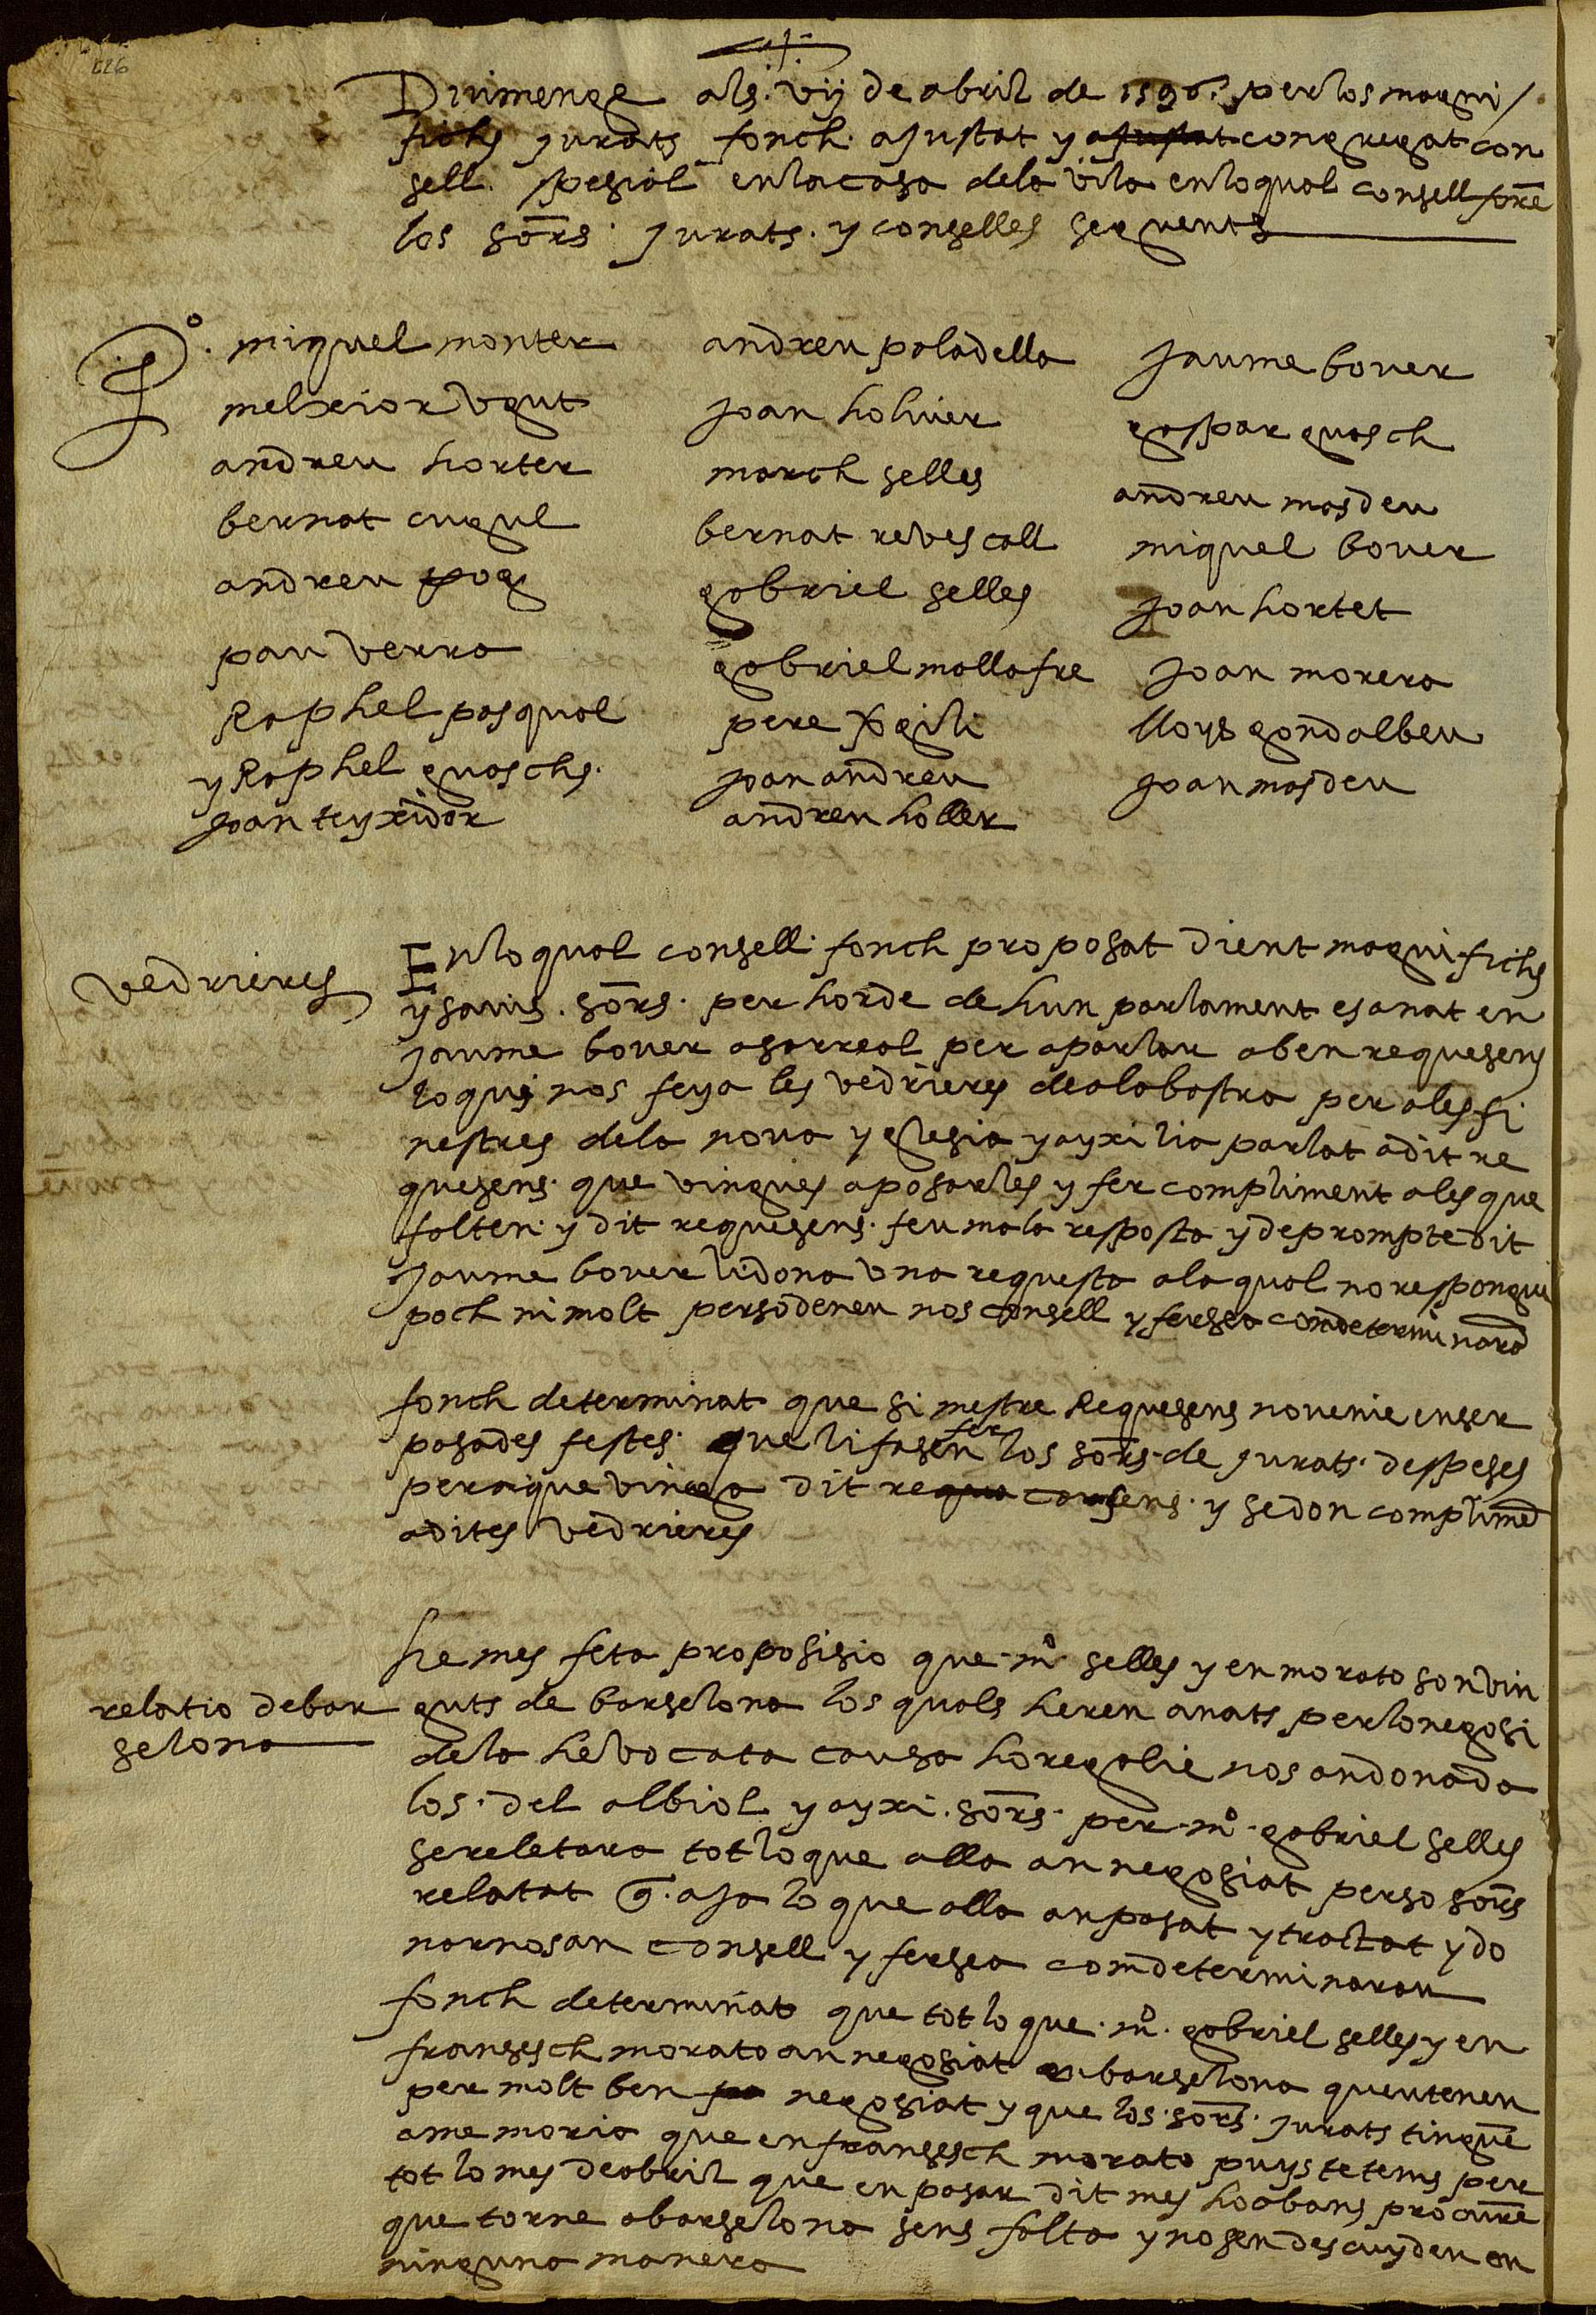 Diumenge als vij de abril de 1596 per los magni
fichs jurats fonch ajustat y ajustat congregat con
sell spesial en la casa de la vila en lo qual consell fore
los sors jurats y conselles seguents
miquel monter
melxior vgut
andreu horter
bernat cugul
andreu pog
pau verra
Raphel pasqual
y Raphel guaschs
joan teyxidor
andreu paladella
joan holiver
march selles
bernat revescall
gabriel selles
gabriel mallafre
pere gili
joan andreu
andreu holler
jaume bover
gaspar guasch
andreu masdeu
miquel bover
joan hortet
joan morera
lloys gondalbeu
joan masdeu
vedrieres
En lo qual consell fonch proposat dient magnifichs
y savis sors per horde de hun parlament es anat en
jaume bover a sarreal per a parlar ab en requesens
lo qui nos feya les vedrieres de alabastra per a les fi
nestres de la nova yglesia y ayxi lia parlat a dit re
quesens que vingues a posarles y fer compliment a les que
falten y dit requesens feu mala resposta y de prompte dit
jaume bover li dona vna requesta a la qual no respongui
poch ni molt perso deneu nos consell y fersea com determinareu
fonch determinat que si mestre Requesens no venie enser
pasades festes que li fasen fer los sors de jurats despeses
per a que vinga dit requesens y se don compliment
a dites vedrieres
relatio de bar
selona
he mes feta proposisio que mº selles y en morato son vin
guts de barselona los quals heren anats per lo negosi
de la hevocata causa ho regalie nos an donada
los del albiol y ayxi sors per mº gabriel selles
se reletara tot lo que alla an negosiat perso sors
relatat q aja lo que alla an pasat y tractat y do
narnosan consell y fersea com determinarau
fonch determinat que tot lo que mº gabriel selles y en
fransesch morato an negosiat en barselona queu tenen
per molt ben negosiat y que los sors jurats tingue
a memoria que en fransesch morato puys te tems per
tot lo mes de abril que en pasar dit mes ho abans procure
que torne a barselona sens falta y no sen descuyden en
ninguna manera